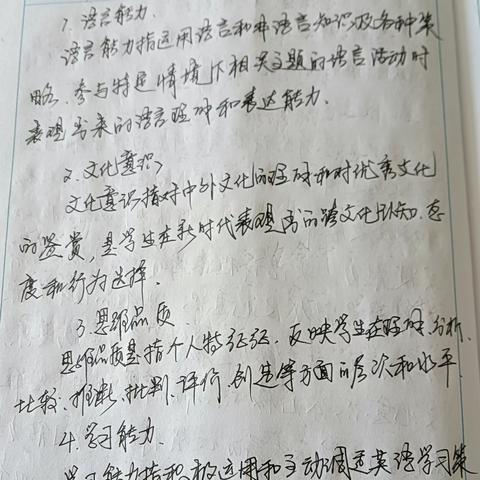 1. 语言能力.
语言能力指运用语言和非语言知识及各种策
略,参与特定情境下相关主题的语言活动时
表现出来的语言理解和表达能力.
2. 文化意识
文化意识指对中外文化的理解和对优秀文化
的鉴赏,是学生在新时代表现出的跨文化认知.态
度和行为选择.
3. 思维品质.
思维品质是指个人特征征.反映学生在理解.分析.
比较.推断.批判.评价.创造等方面的层次和水平
4. 学习能力.
学习能力指积极运用和主动调适英语学习策